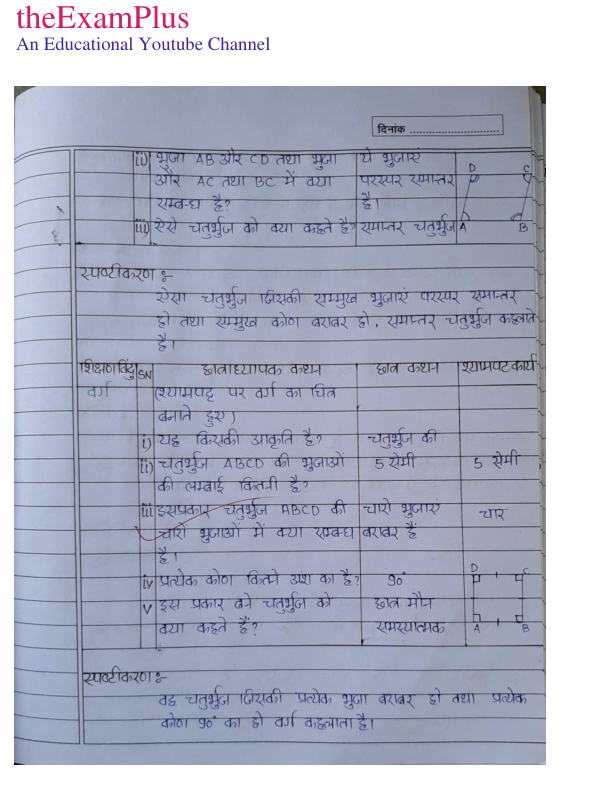 theExamPlus
An Educational Youtube Channel
दिनांक ............................
ii) भुजा AB और CD तथा भुजा ये भुजाएं D C
और AC तथा BC में क्या परस्पर समान्तर
सम्बन्ध है? है।
iii) ऐसे चतुर्भुज को क्या कहते है? समान्तर चतुर्भुज A B
स्पष्टीकरण :-
ऐसा चतुर्भुज जिसकी सम्मुख भुजाएं परस्पर समान्तर
हो तथा सम्मुख कोण बराबर हो, समान्तर चतुर्भुज कहलाते
है।
शिक्षण बिंदु SN छात्राध्यापक कथन छात्र कथन श्यामपट कार्य
वर्ग (श्यामपट्ट पर वर्ग का चित्र
बनाते हुए)
i) यह किसकी आकृति है? चतुर्भुज की
ii) चतुर्भुज ABCD की भुजाओं 5 सेमी 5 सेमी
की लम्बाई कितनी है?
iii इसप्रकार चतुर्भुज ABCD की चारो भुजाएं चार
चारो भुजाओं में क्या सम्बन्ध बराबर हैं
है।
iv प्रत्येक कोण कितने अंश का है? 90° D C
v इस प्रकार बने चतुर्भुज को छात्र मौन
क्या कहते हैं? समस्यात्मक A B
स्पष्टीकरण :-
वह चतुर्भुज जिसकी प्रत्येक भुजा बराबर हो तथा प्रत्येक
कोण 90° का हो वर्ग कहलाता है।